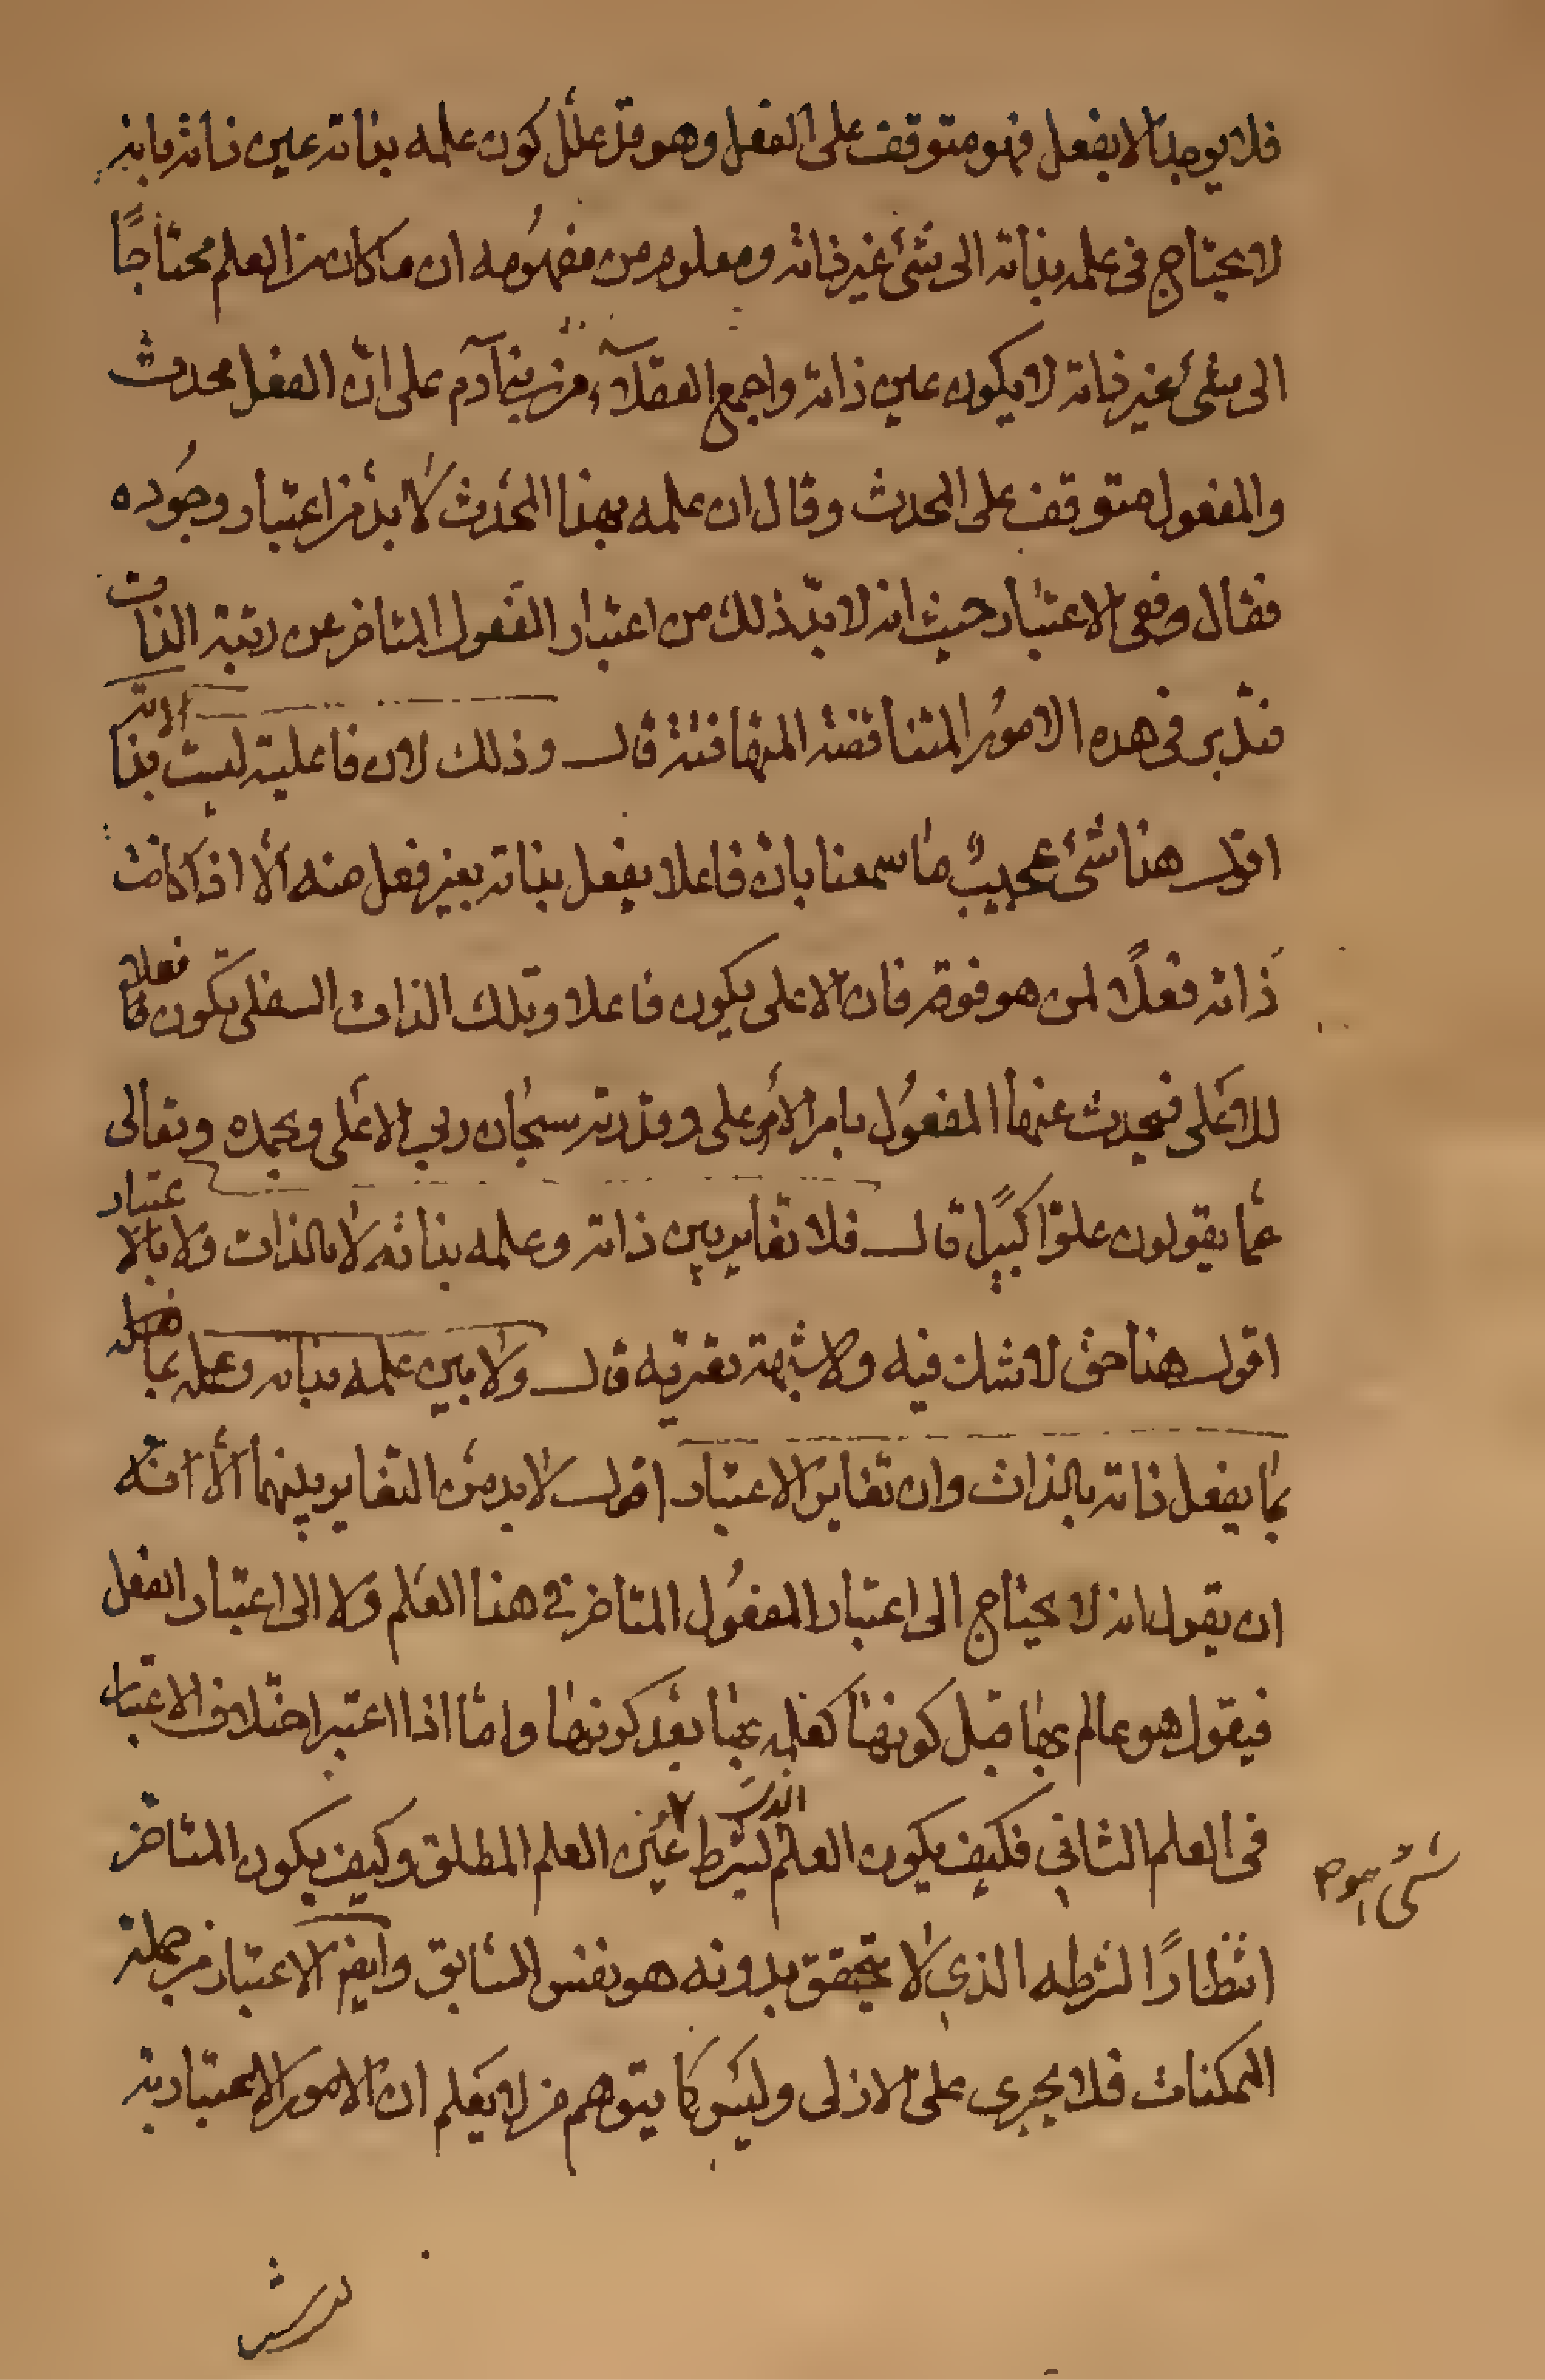 فلا يوجد الا بفعل فهو متوقف على الفعل وهو قد علل كون علمه بذاته عين ذاته بانه
لا يحتاج فى علمه بذاته الى شئ غير ذاته ومعلوم من مفهومه ان ما كان من العلم محتاجًا
الى شئ غير ذاته لا يكون عين ذاته واجمع العقلاء من بنى آدم على ان الفعل محدث
والمفعول متوقف على المحدث وقال ان علمه بهذا المحدث لا بد من اعتبار وجوده
فقال وفى الاعتبار حيث انه لا بد ذلك من اعتبار المفعول المتاخر عن رتبة الذات
فتدبر فى هذه الامور المتناقضة المتهافتة قال وذلك لان فاعليته ليست بذا الاته
اقول هذا شئ عجيب ما سمعنا بان فاعلا يفعل بذاته بغير فعل منه الا اذا كانت
ذاته فعلًا لمن هو فوقه فان الاعلى يكون فاعلا وتلك الذات السفلى تكون فعلا
للاعلى فيحدث عنها المفعول بامر الاعلى وقدرته سبحان ربي الاعلى وبحمده وتعالى
عما يقولون علوّا كبيرًا قال فلا تغاير بين ذاته وعلمه بذاته لا بالذات ولا بالاعتبار
اقول هذا حق لا شك فيه ولا شبهة تعتريه قال ولا بين علمه بذاته وعلمه بما
بما يفعل ذاته بالذات وان تغاير الاعتبار اقول لا بد من التغاير بينهما الا انه
ان يقول انه لا يحتاج الى اعتبار المفعول المتاخر في هذا العلم ولا الى اعتبار الفعل
فيقول هو عالم بها قبل كونها كعلمه بها بعد كونها واما اذا اعتبر اختلاف الاعتبار
فى العلم الثاني فكيف يكون العلم بشرط عين العلم المطلق وكيف يكون المتاخر
انتظارًا لشرطه الذي لا يتحقق بدونه هو نفس السابق وايضا الاعتبار من جملة
الممكنات فلا يجرى على الازلى وليس كما يتوهم من لا يعلم ان الامور الاعتبارية